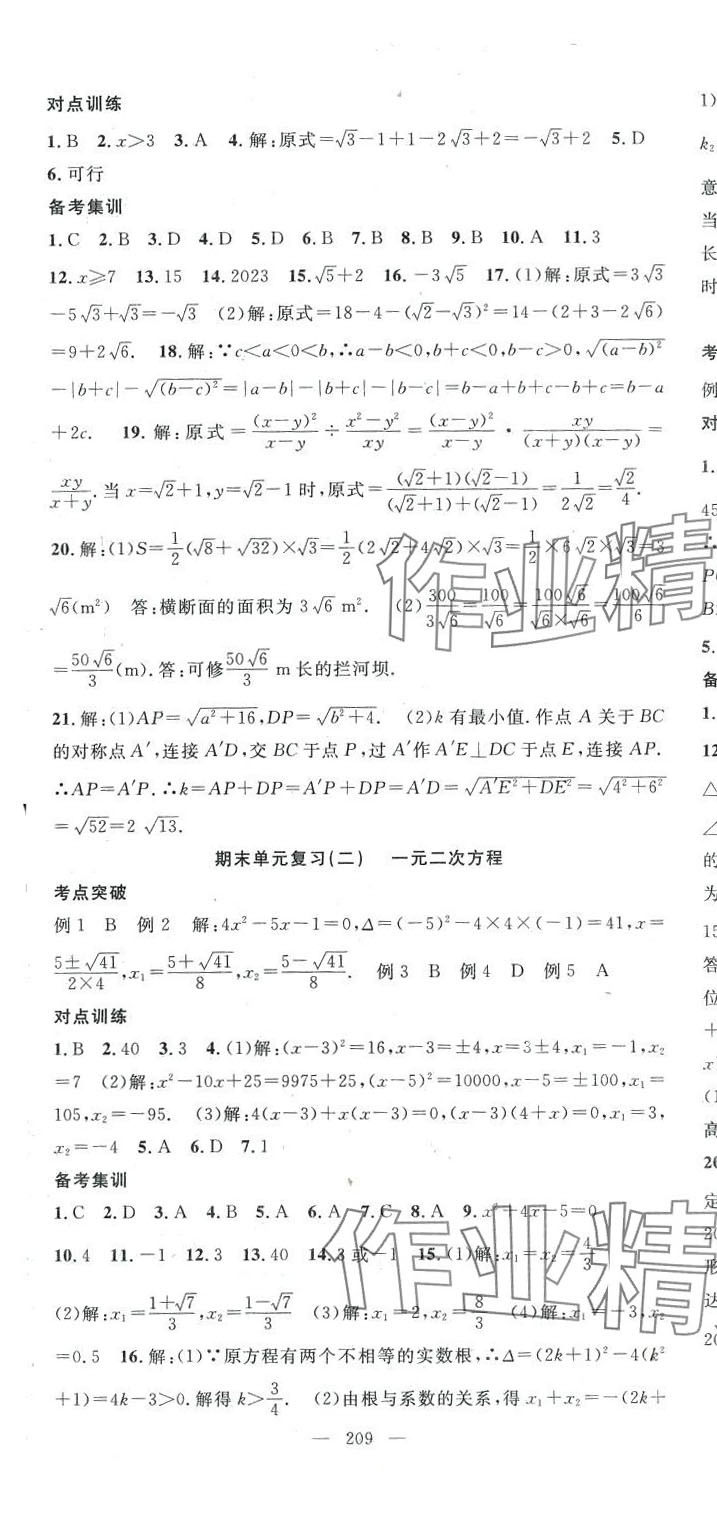 对点训练
1.B 2.x>3 3.A 4.解:原式=√3-1+1-2√3+2=-√3+2 5.D
6.可行
备考集训
1.C 2.B 3.D 4.D 5.D 6.B 7.B 8.B 9.B 10.A 11.3
12.x≥7 13.15 14.2023 15.√5+2 16.-3√5 17.(1)解:原式=3√3
-5√3+√3=-√3 (2)解:原式=18-4-(√2-√3)²=14-(2+3-2√6)
=9+2√6. 18.解:∵c<a<0<b,∴a-b<0,b+c<0,b-c>0,√(a-b)²
-|b+c|-√(b-c)²=|a-b|-|b+c|-|b-c|=b-a+b+c-b+c=b-a
+2c. 19.解:原式=(x-y)²/(x-y)÷(x²-y²)/xy=(x-y)²/(x-y)·xy/((x+y)(x-y))=
xy/(x+y).当x=√2+1,y=√2-1时,原式=(√2+1)(√2-1)/(√2+1)+(√2-1)=1/(2√2)=√2/4.
20.解:(1)S=1/2(√8+√32)×√3=1/2(2√2+4√2)×√3=1/2×6√2×√3=3
√6(m²) 答:横断面的面积为3√6 m². (2)300/(3√6)=100/√6=100√6/(√6×√6)=100√6/6
=50√6/3(m).答:可修50√6/3 m长的拦河坝.
21.解:(1)AP=√(a²+16),DP=√(b²+4). (2)k有最小值.作点A关于BC
的对称点A′,连接A′D,交BC于点P,过A′作A′E⊥DC于点E,连接AP.
∴AP=A′P.∴k=AP+DP=A′P+DP=A′D=√(A′E²+DE²)=√(4²+6²)
=√52=2√13.
期末单元复习(二) 一元二次方程
考点突破
例1 B 例2 解:4x²-5x-1=0,Δ=(-5)²-4×4×(-1)=41,x=
(5±√41)/(2×4),x₁=(5+√41)/8,x₂=(5-√41)/8. 例3 B 例4 D 例5 A
对点训练
1.B 2.40 3.3 4.(1)解:(x-3)²=16,x-3=±4,x₁=-1,x₂
=7 (2)解:x²-10x+25=9975+25,(x-5)²=10000,x-5=±100,x₁=
105,x₂=-95. (3)解:4(x-3)+x(x-3)=0,(x-3)(4+x)=0,x₁=3,
x₂=-4 5.A 6.D 7.1
备考集训
1.C 2.D 3.A 4.B 5.A 6.A 7.C 8.A 9.x²+4x-5=0
10.4 11.-1 12.3 13.40 14.3或-1 15.(1)解:x₁=x₂=4/3
(2)解:x₁=(1+√7)/3,x₂=(1-√7)/3 (3)解:x₁=2,x₂=8/3 (4)解:x₁=-3,x₂
=0.5 16.解:(1)∵原方程有两个不相等的实数根,∴Δ=(2k+1)²-4(k²
+1)=4k-3>0.解得k>3/4. (2)由根与系数的关系,得x₁+x₂=-(2k+
— 209 —
作业精
作业精
1)
k₂
意
当
长
时
考
例
对
1.
45
∴
P
B
5.
备
1.
12
△
∠
的
为
15
答
位
+
x
(1
高
20
定
20
形
达
20